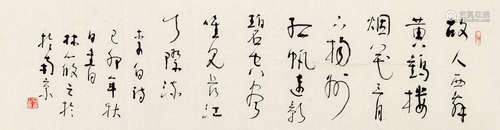 故人西辞
黄鹤楼
烟花三月
下扬州
孤帆远影
碧空尽
唯见长江
天际流
李白诗
己卯年秋
日书
林筱之于
南京